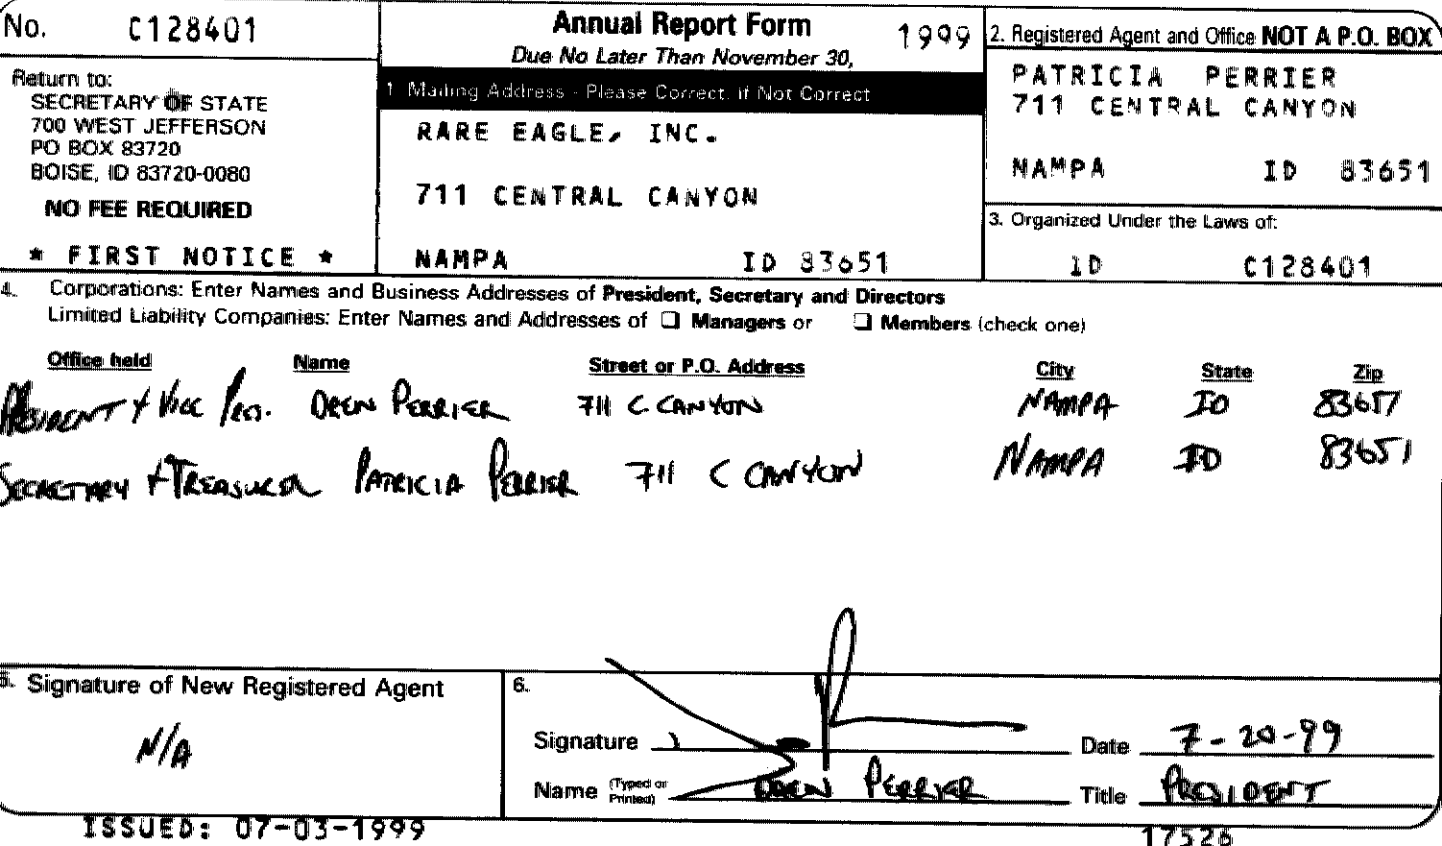 No. C128401
Return to:
SECRETARY OF STATE
700 WEST JEFFERSON
PO BOX 83720
BOISE, ID 83720-0080
NO FEE REQUIRED
* FIRST NOTICE *
Annual Report Form 1999
Due No Later Than November 30,
1 Mailing Address - Please Correct, If Not Correct
RARE EAGLE, INC.
711 CENTRAL CANYON
NAMPA ID 83651
2. Registered Agent and Office NOT A P.O. BOX
PATRICIA PERRIER
711 CENTRAL CANYON
NAMPA ID 83651
3. Organized Under the Laws of:
ID C128401
4. Corporations: Enter Names and Business Addresses of President, Secretary and Directors
Limited Liability Companies: Enter Names and Addresses of ☐ Managers or ☐ Members (check one)
Office held Name Street or P.O. Address City State Zip
PRESIDENT + VICE PRES. OREN PERRIER 711 C CANYON NAMPA ID 83651
SECRETARY + TREASURER PATRICIA PERRIER 711 C CANYON NAMPA ID 83651
5. Signature of New Registered Agent
N/A
6.
Signature Date 7-20-99
Name (Typed or Printed) OREN PERRIER Title PRESIDENT
ISSUED: 07-03-1999 17526